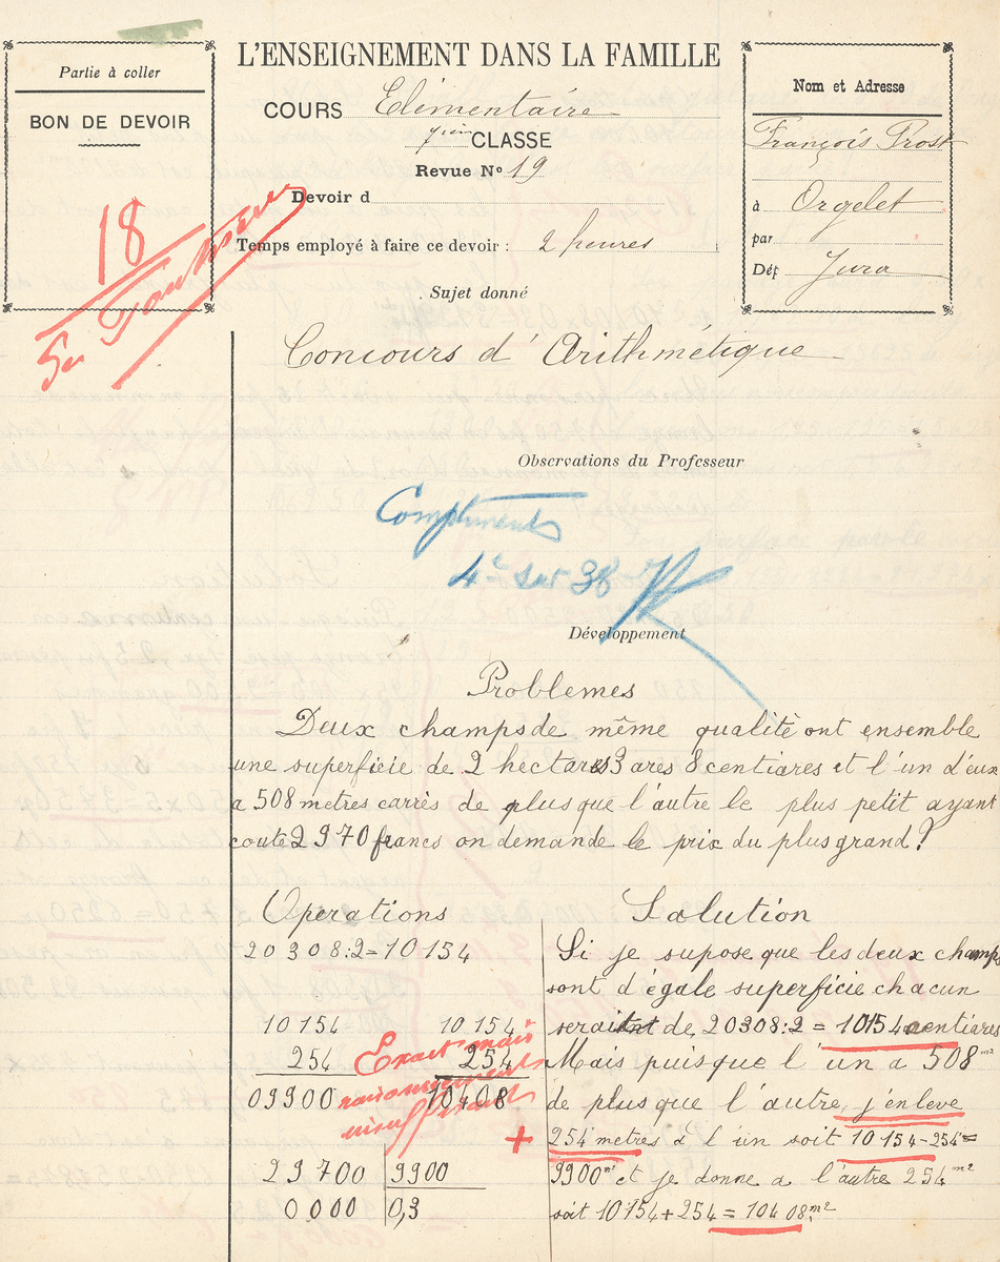 Partie à coller
BON DE DEVOIR
18
L'ENSEIGNEMENT DANS LA FAMILLE
COURS Elémentaire
7ème CLASSE
Revue N° 19
Devoir d
Temps employé à faire ce devoir : 2 heures
Nom et Adresse
François Prost
à Orgelet
par
Dép Jura
Sujet donné
Concours d'Arithmétique
Observations du Professeur
Compliments
4e sur 38
Développement
Problemes
Deux champs de même qualité ont ensemble
une superficie de 2 hectares 3 ares 8 centiares et l'un d'eux
a 508 metres carrès de plus que l'autre le plus petit ayant
couté 2970 francs on demande le prix du plus grand?
Operations
20308:2=10154
10154 10154
254 254
09900 10408
Exact mais
raisonnements
insuffisants
29700 9900
0000 0,3
Solution
Si je supose que les deux champs
sont d'égale superficie chacun
serait de 20308:2 = 10154 centiares
Mais puisque l'un a 508 m2
de plus que l'autre, j'enleve
+ 254 metres à l'un soit 10154-254=
9900 m2 et je donne a l'autre 254 m2
soit 10154+254 = 10408 m2